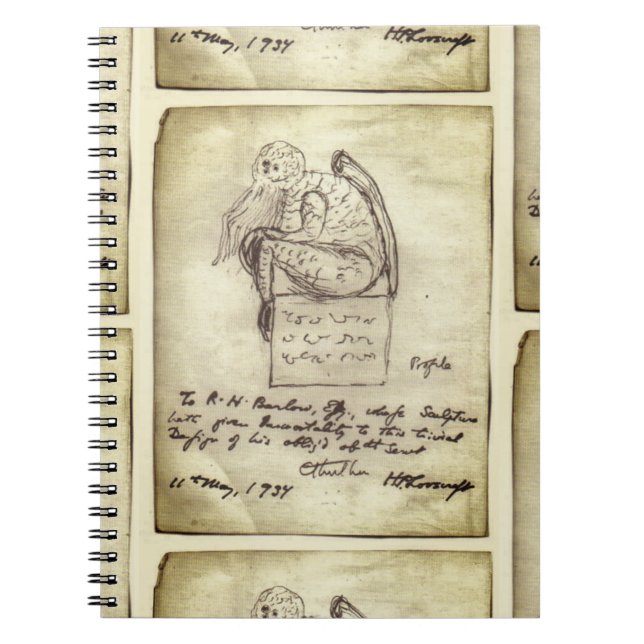 11th May, 1934 HPLovecraft
Profile
To R. H. Barlow, Eſq., whoſe Sculpture
hath given Immortality to this trivial
Deſign of his oblig'd obt Servt
Cthulhu
11th May, 1934 HPLovecraft